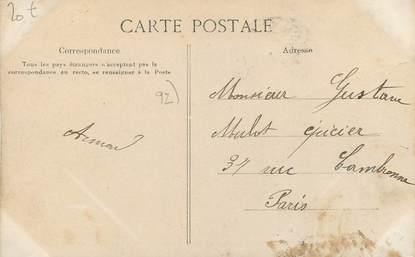 20 t
CARTE POSTALE
Correspondance
Tous les pays étrangers n'acceptent pas la
correspondance au recto, se renseigner à la Poste
Adresse
92)
Monsieur Gustave
Mulot épicier
37 rue Cambronne
Paris